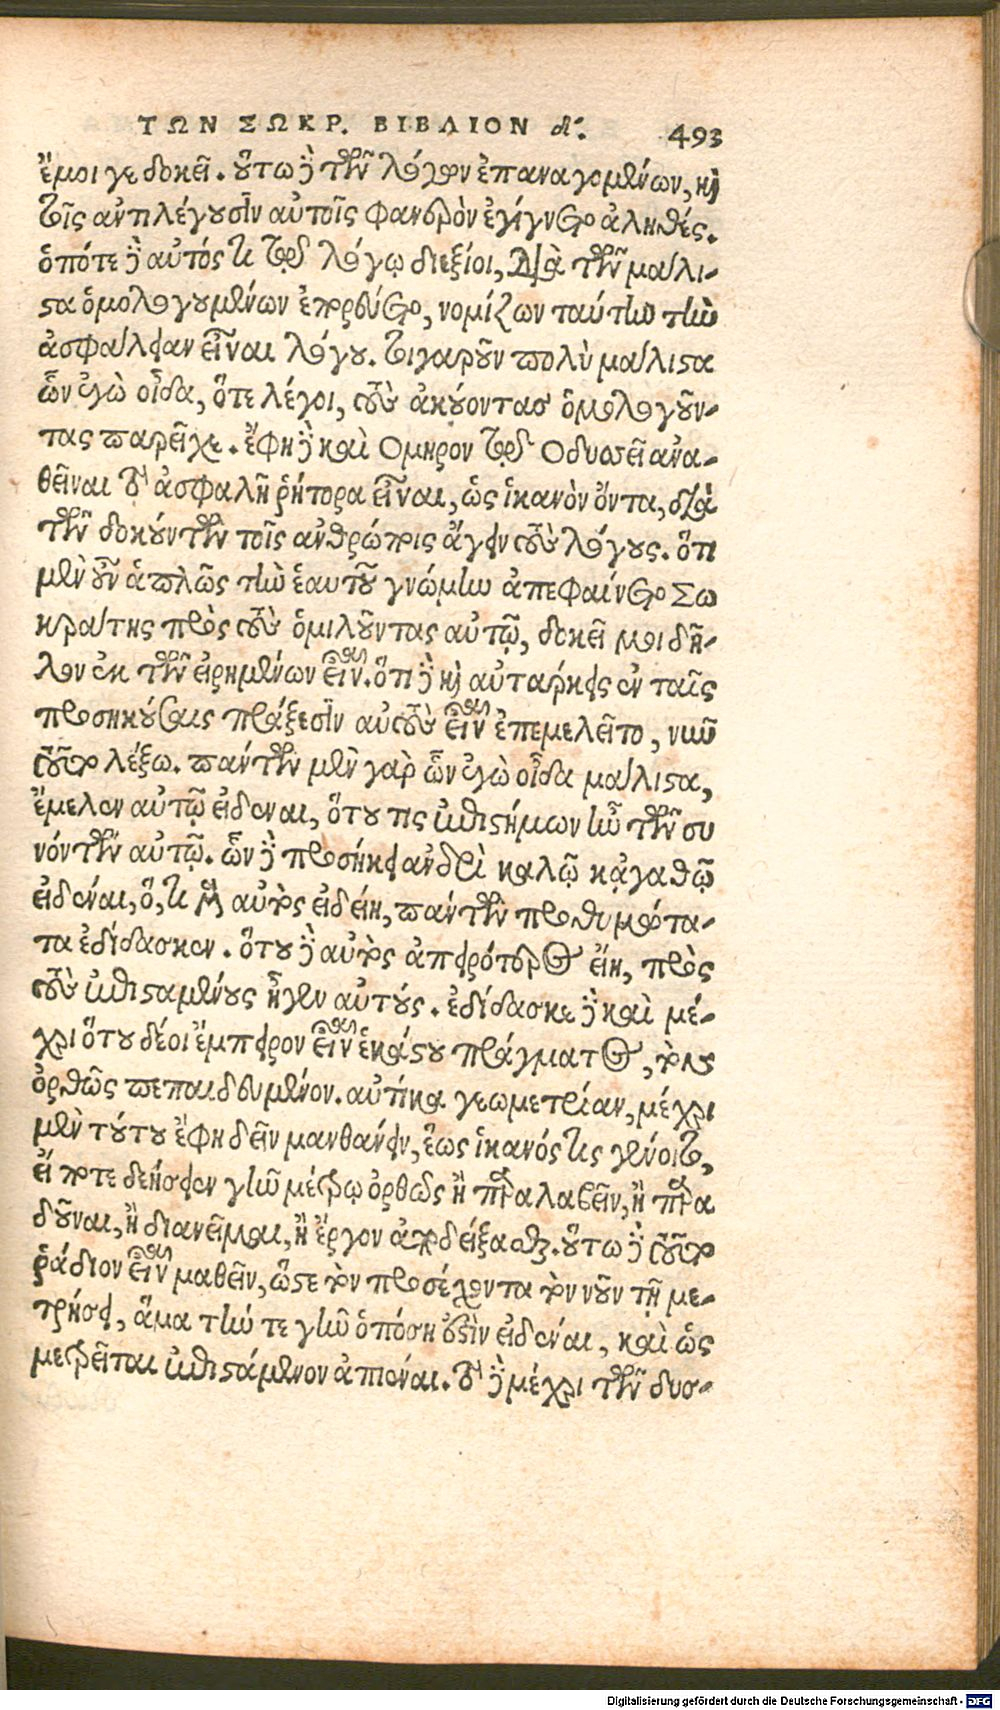 ΤΩΝ ΣΩΚΡ. ΒΙΒΛΙΟΝ δ'. 493
ἔμοι γε δοκεῖ. οὕτω δὲ τῶν λόγων ἐπαναγομένων, καὶ
τοῖς ἀντιλέγουσιν αὐτοῖς φανερὸν ἐγίγνετο ἀληθές.
ὁπότε δὲ αὐτός τι τῷ λόγῳ διεξίοι, διὰ τῶν μάλι-
στα ὁμολογουμένων ἐπορεύετο, νομίζων ταύτην τὴν
ἀσφάλειαν εἶναι λόγου. τοιγαροῦν πολὺ μάλιστα
ὧν ἐγὼ οἶδα, ὅτε λέγοι, τοὺς ἀκούοντας ὁμολογοῦν-
τας παρεῖχε. ἔφη δὲ καὶ Ομηρον τῷ Οδυσσεῖ ἀνα-
θεῖναι τὸ ἀσφαλῆ ῥήτορα εἶναι, ὡς ἱκανὸν ὄντα, διὰ
τῶν δοκούντων τοῖς ἀνθρώποις ἄγειν τοὺς λόγους. ὅτι
μὲν οὖν ἁπλῶς τὴν ἑαυτοῦ γνώμην ἀπεφαίνετο Σω
κράτης πρὸς τοὺς ὁμιλοῦντας αὐτῷ, δοκεῖ μοι δῆ-
λον ἐκ τῶν εἰρημένων εἶναι. ὅτι δὲ καὶ αὐτάρκεις ἐν ταῖς
προσηκούσαις πράξεσιν αὐτοὺς εἶναι ἐπεμελεῖτο, νῦν
τοῦτο λέξω. πάντων μὲν γὰρ ὧν ἐγὼ οἶδα μάλιστα,
ἔμελεν αὐτῷ εἰδέναι, ὅτου τις ἐπιστήμων ἦν τῶν συ
νόντων αὐτῷ. ὧν δὲ προσήκει ἀνδρὶ καλῷ κἀγαθῷ
εἰδέναι, ὅ, τι μὲν αὐτὸς εἰδείη, πάντων προθυμότα-
τα ἐδίδασκεν. ὅτου δὲ αὐτὸς ἀπειρότερος εἴη, πρὸς
τοὺς ἐπισταμένους ἦγεν αὐτούς. ἐδίδασκε δὲ καὶ μέ-
χρι ὅτου δέοι ἔμπειρον εἶναι ἑκάστου πράγματος, τὸν
ὀρθῶς πεπαιδευμένον. αὐτίκα γεωμετρίαν, μέχρι
μὲν τούτου ἔφη δεῖν μανθάνειν, ἕως ἱκανός τις γένοιτο,
εἴ ποτε δεήσειεν γῆν μέτρῳ ὀρθῶς ἢ παραλαβεῖν, ἢ παρα
δοῦναι, ἢ διανεῖμαι, ἢ ἔργον ἀποδείξασθαι. οὕτω δὲ τοῦτο
ῥᾴδιον εἶναι μαθεῖν, ὥστε τὸν προσέχοντα τὸν νοῦν τῇ με-
τρήσει, ἅμα τήν τε γῆν ὁπόση ἐστὶν εἰδέναι, καὶ ὡς
μετρεῖται ἐπιστάμενον ἀπιέναι. τὸ δὲ μέχρι τῶν δυσ-
Digitalisierung gefördert durch die Deutsche Forschungsgemeinschaft - DFG